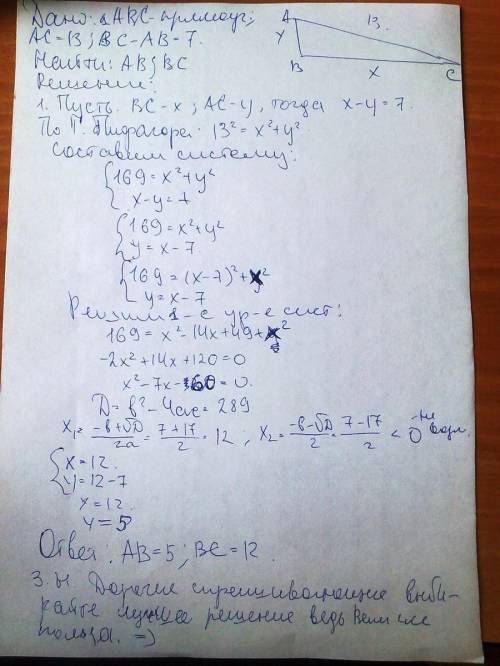 Дано: △ABC-прямоуг;
AC=13; BC-AB=7.
Найти: AB; BC
Решение:
A
13.
y
B
x
C
1. Пусть BC-x; AC-y, тогда x-y=7.
По Т. Пифагора: 13²=x²+y².
Составим систему:
{169=x²+y²
x-y=7
{169=x²+y²
y=x-7.
{169=(x-7)²+x²
y=x-7
Решим 1-е ур-е сист:
169=x²-14x+49+x²
-2x²+14x+120=0
x²-7x-60=0.
D=b²-4ac=289
x₁=(-b+√D)/2a=(7+17)/2=12; x₂=(-b-√D)/2=(7-17)/2<0
{x=12.
y=12-7
x=12.
y=5
Ответ: AB=5; BC=12.
З.Ы. Дорогие спрашивающие выби-
райте лучшее решение ведь Вам же
польза. =)